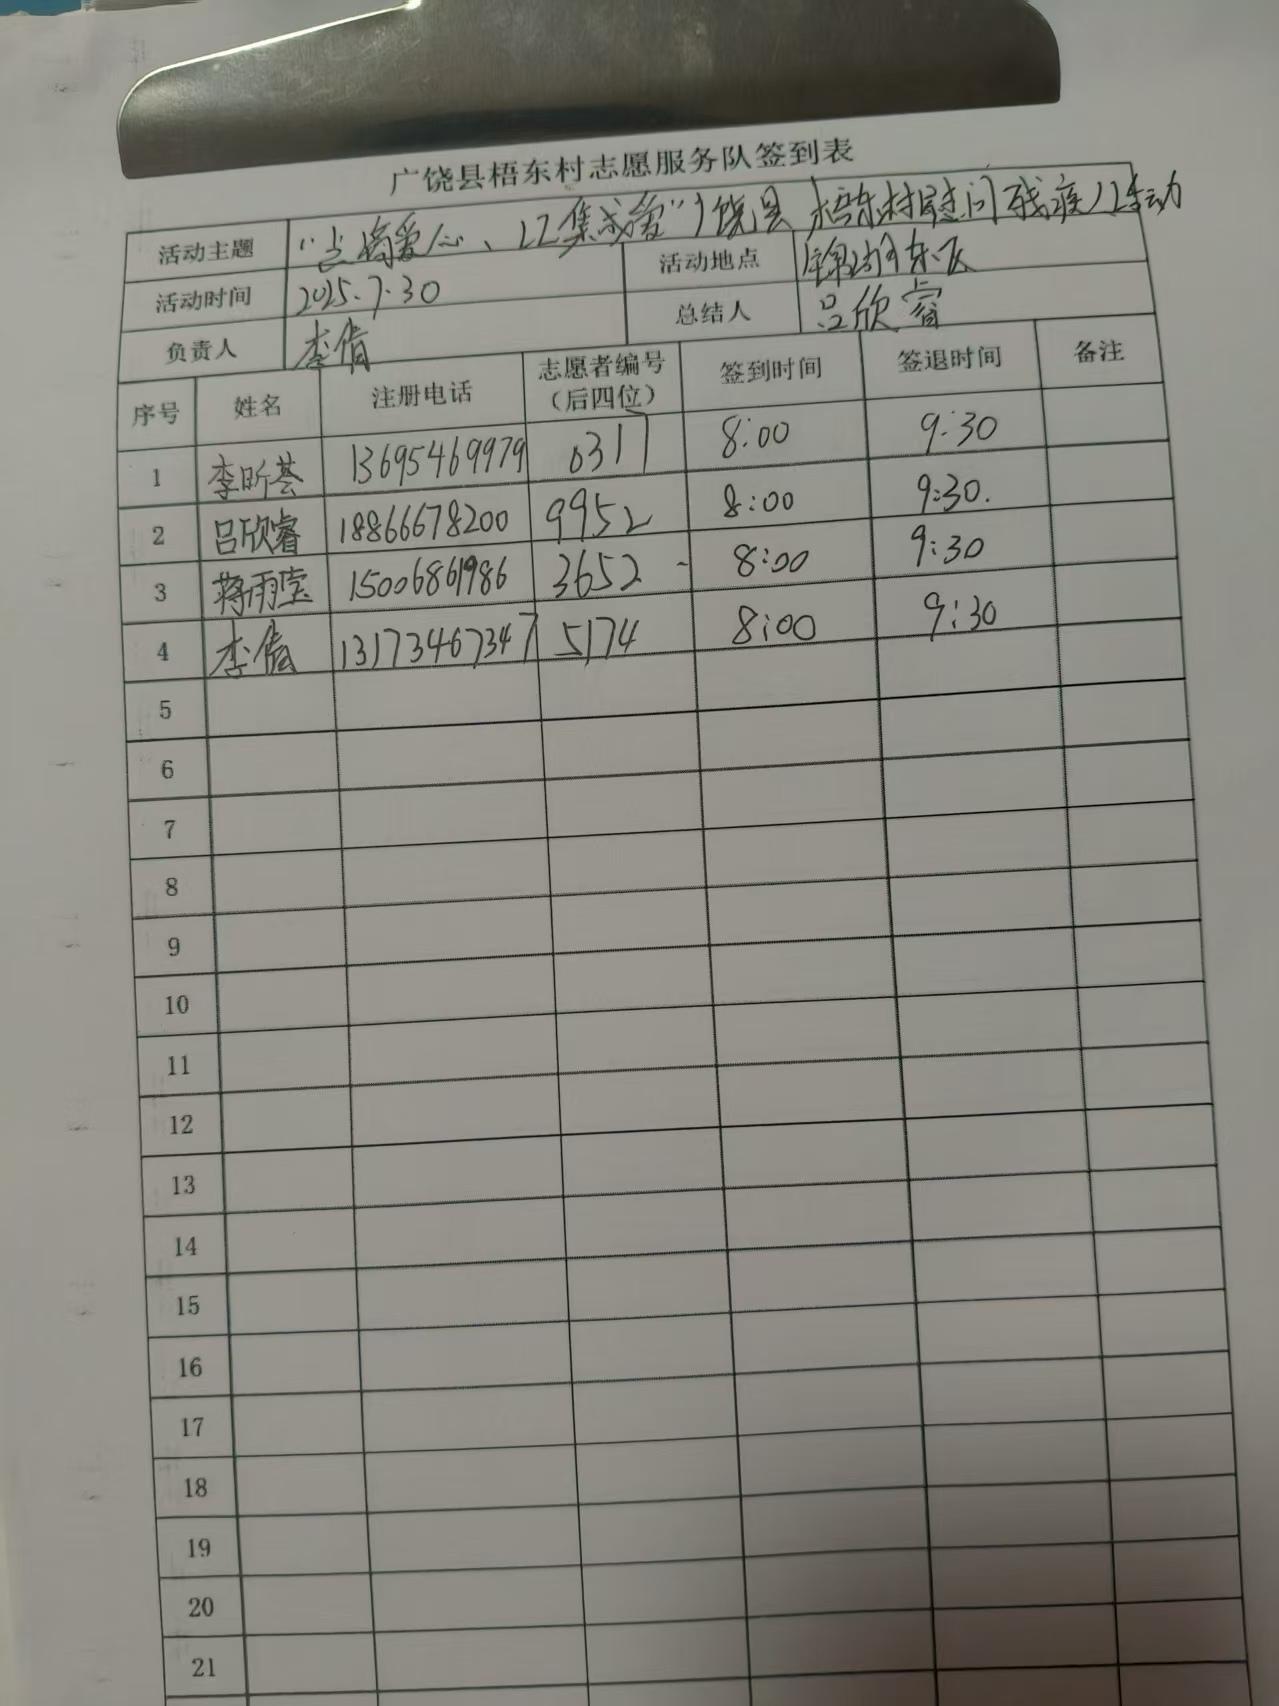 广饶县梧东村志愿服务队签到表
活动主题 "点滴爱心、汇集成爱"广饶县梧东村慰问残疾人活动
活动时间 2025.7.30 活动地点 东区
负责人 李倩 总结人 吕欣睿
序号 姓名 注册电话 志愿者编号（后四位） 签到时间 签退时间 备注
1 李昕荟 13695469979 0317 8:00 9:30
2 吕欣睿 18866678200 9952 8:00 9:30.
3 蒋雨莹 15006861986 3652 8:00 9:30
4 李倩 13173467347 5174 8:00 9:30
5
6
7
8
9
10
11
12
13
14
15
16
17
18
19
20
21